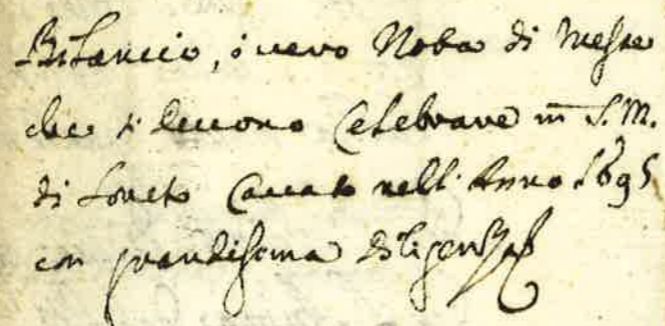 Bilancio, ò vero Nota di Messe
che si deuono Celebrare in S. M.
di Loreto Cauato nell' Anno 1695
con grandissima diligenza